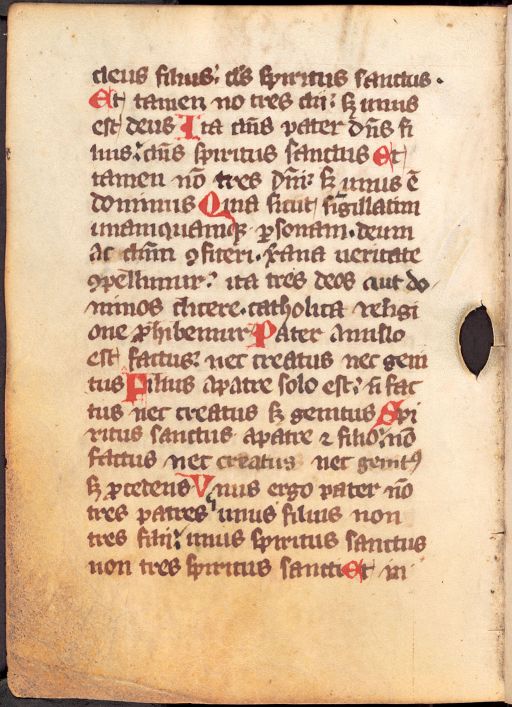 deus filius: ds̄ spiritus sanctus.
Et tamen nō tres dii: sꝫ unus
est deus Ita dn̄s pater dn̄s fi
lius: dn̄s spiritus sanctus Et
tamen nō tres dn̄i: sꝫ unus ē
dominus Quia sicut singillatim
unamquamqꝫ ꝑsonam. deum
ac dn̄m ꝯfiteri. xr̄ana ueritate
ꝯpellimur: ita tres deos aut do
minos dicere. catholica religi
one ꝓhibemur Pater a nullo
est factus: nec creatus nec geni
tus Filius apatre solo est: n̄ fac
tus nec creatus sꝫ genitus Spi
ritus sanctus apatre ⁊ filio: nō
factus nec creatus nec genitꝰ
sꝫ ꝓcedens Unus ergo pater nō
tres patres unus filius non
tres filii: unus spiritus sanctus
non tres spiritus sancti Et in